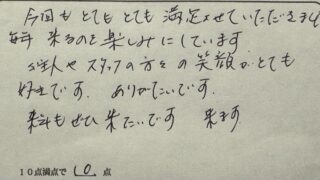 今回もとてもとても満足させていただきました
毎年来るのを楽しみにしています
主人やスタッフの方々の笑顔がとても
好きです。ありがたいです。
来年もぜひ来たいです 来ます
10点満点で 10 点